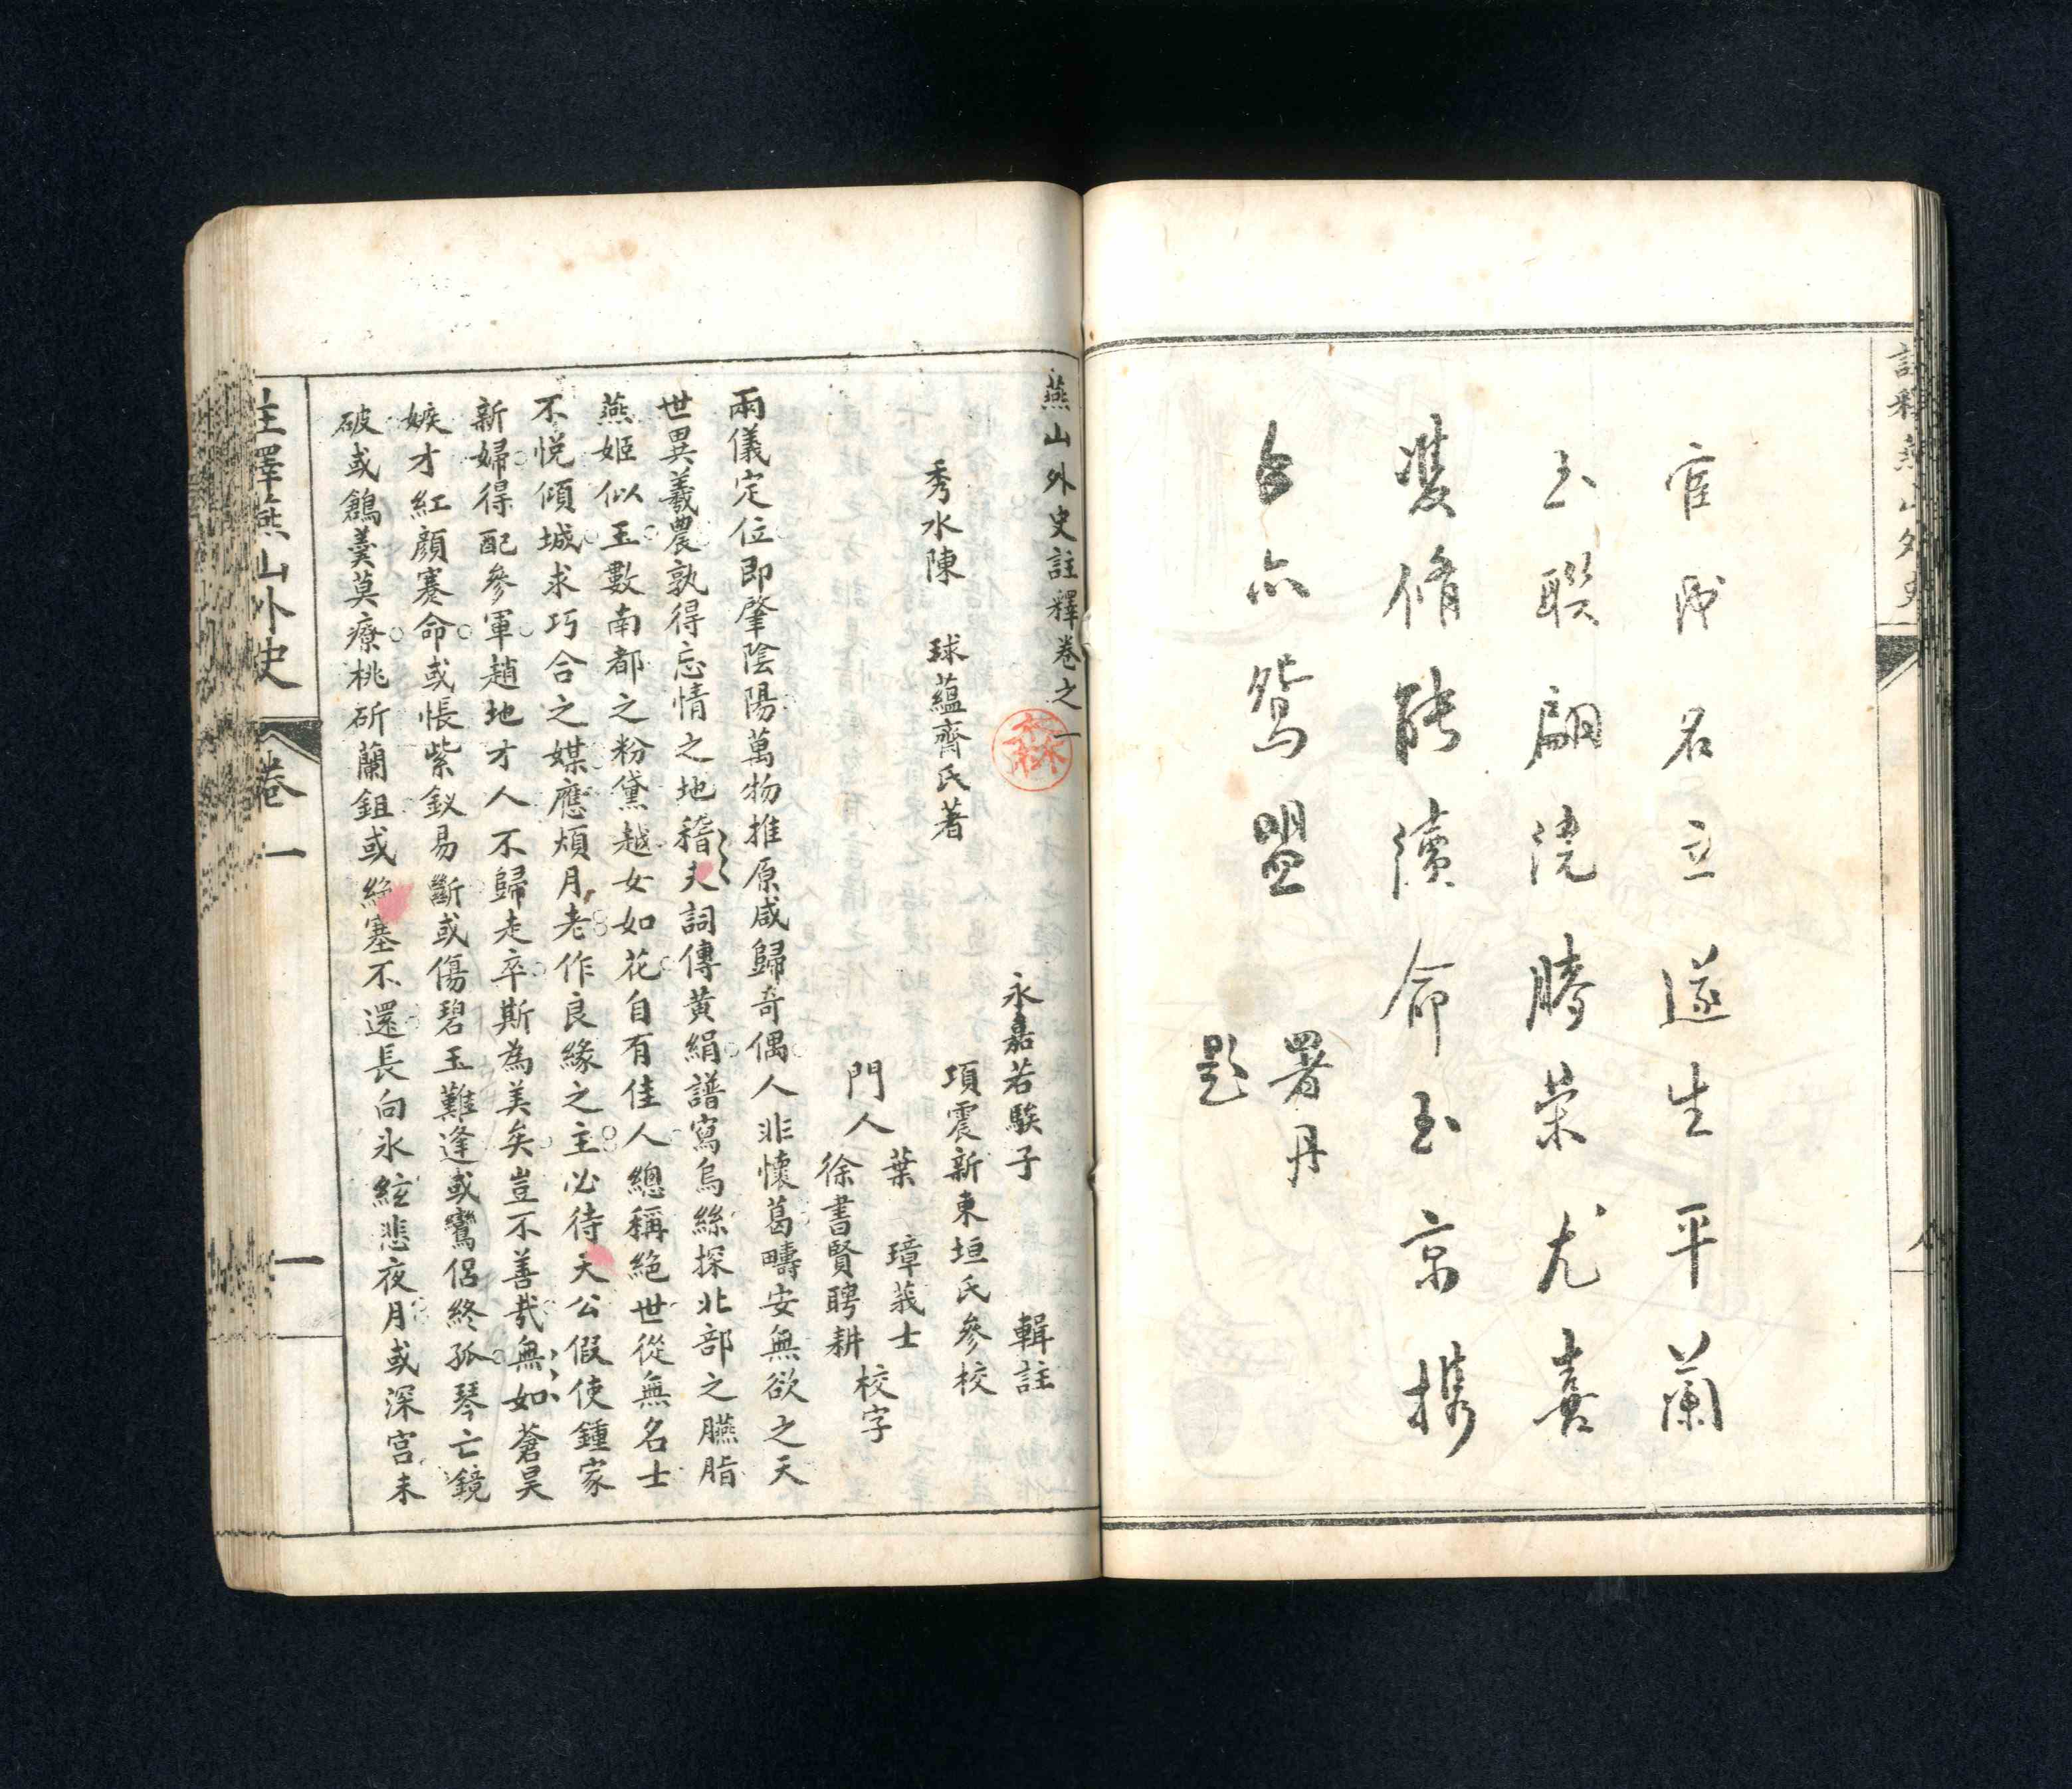 註釋燕山外史
宦成名立遂生平蘭
玉聯翩浣勝榮尤喜
雙脩能續命玉京携
手亦鴛盟
署丹
題
燕山外史註釋卷之一
永嘉若騤子 輯註
秀水陳 球蘊齋氏著
項震新東垣氏參校
門人 葉 璋義士
徐書賢聘耕 校字
兩儀定位即肇陰陽萬物推原咸歸奇偶人非懷葛疇安無欲之天
世異羲農孰得忘情之地稽夫詞傳黃絹譜寫烏絲探北部之臙脂
燕姬似玉數南都之粉黛越女如花自有佳人總稱絕世從無名士
不悅傾城求巧合之媒應煩月老作良緣之主必待天公假使鍾家
新婦得配參軍趙地才人不歸走卒斯為美矣豈不善哉無如蒼昊
嫉才紅顏蹇命或悵紫釵易斷或傷碧玉難逢或鸞侶終孤琴亡鏡
破或鶬羹莫療桃斫蘭鉏或絶塞不還長向氷絃悲夜月或深宮未
註釋燕山外史
卷一
一